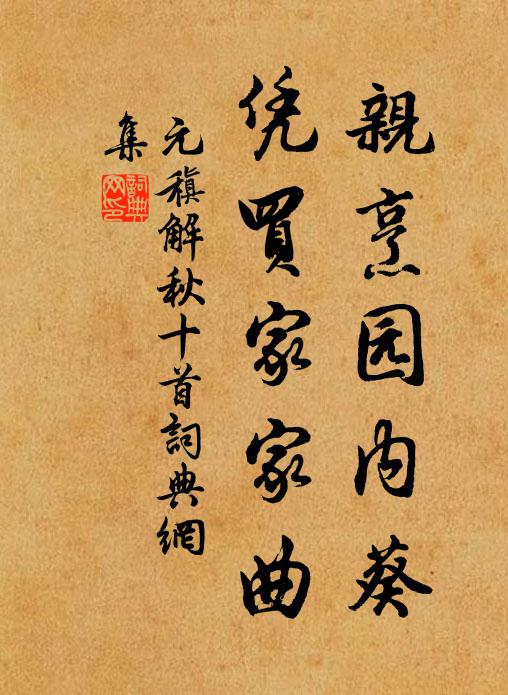 親烹园内葵
凭買家家曲
元稹解秋十首詞典網
集
詞典
网印